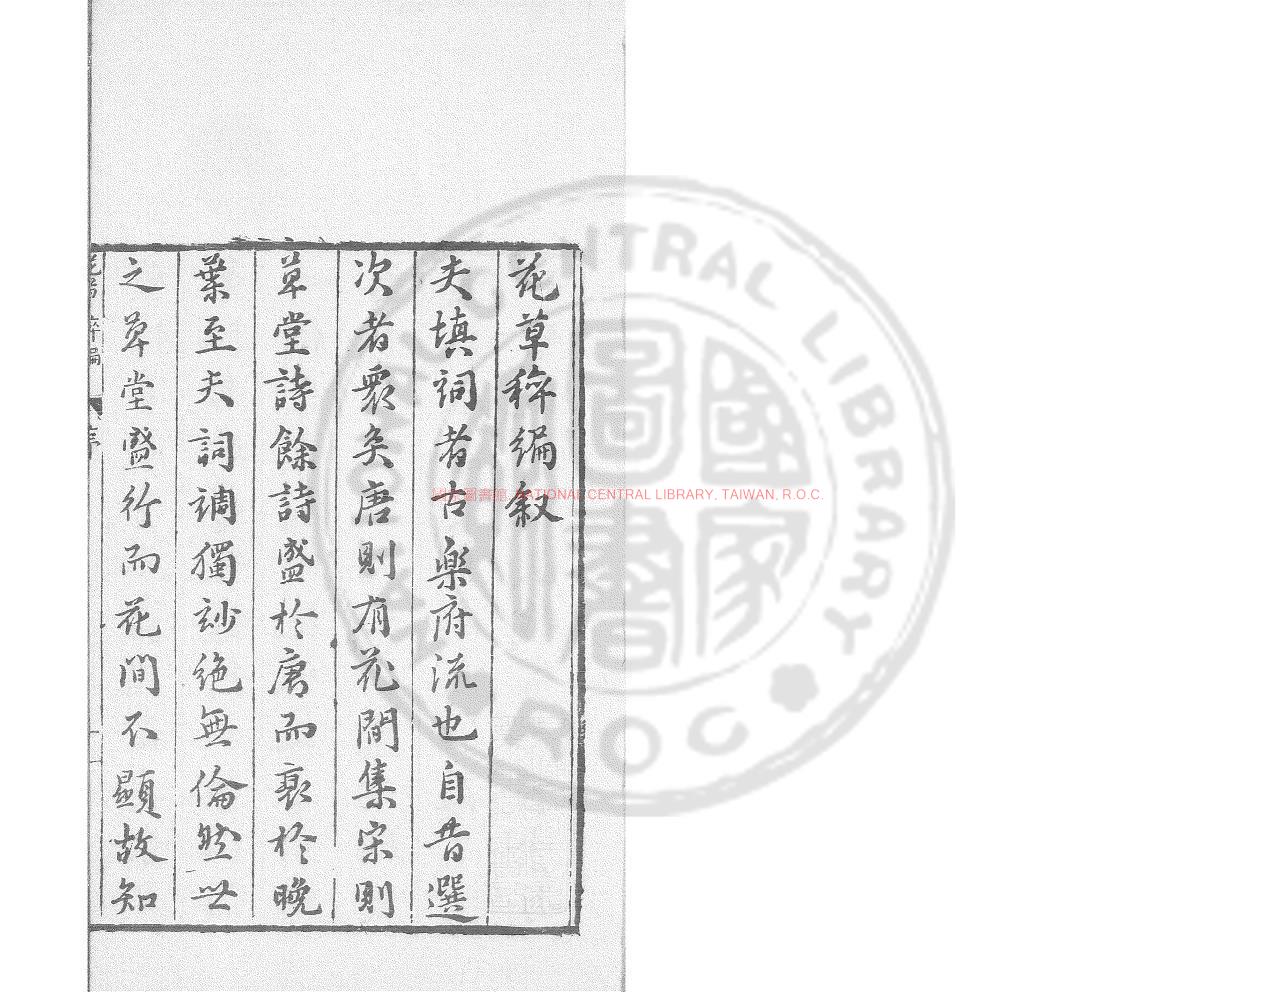 花草稡編叙
夫填詞者古樂府流也自昔選
次者衆矣唐則有花間集宋則
草堂詩餘詩盛於唐而衰於晚
葉至夫詞調獨妙絶無倫然世
之草堂盛行而花間不顯故知
國家圖書館, NATIONAL CENTRAL LIBRARY, TAIWAN, R.O.C.
CENTRAL LIBRARY
R O C
國家圖書